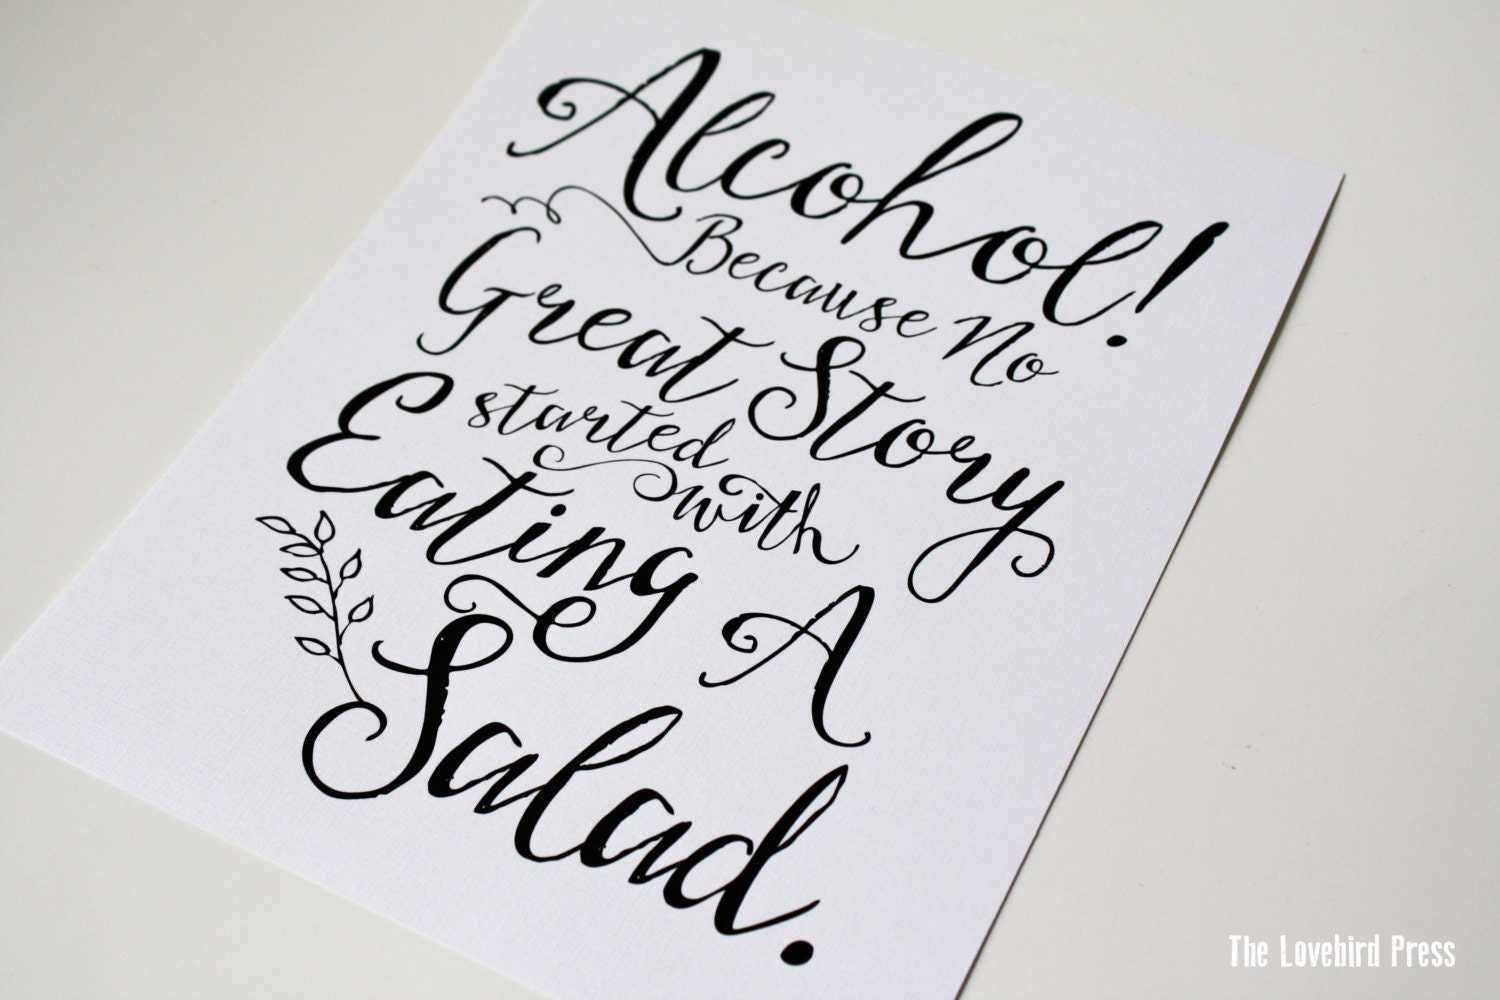 Alcohol!
Because No
Great Story
started
with
Eating A
Salad.
The Lovebird Press